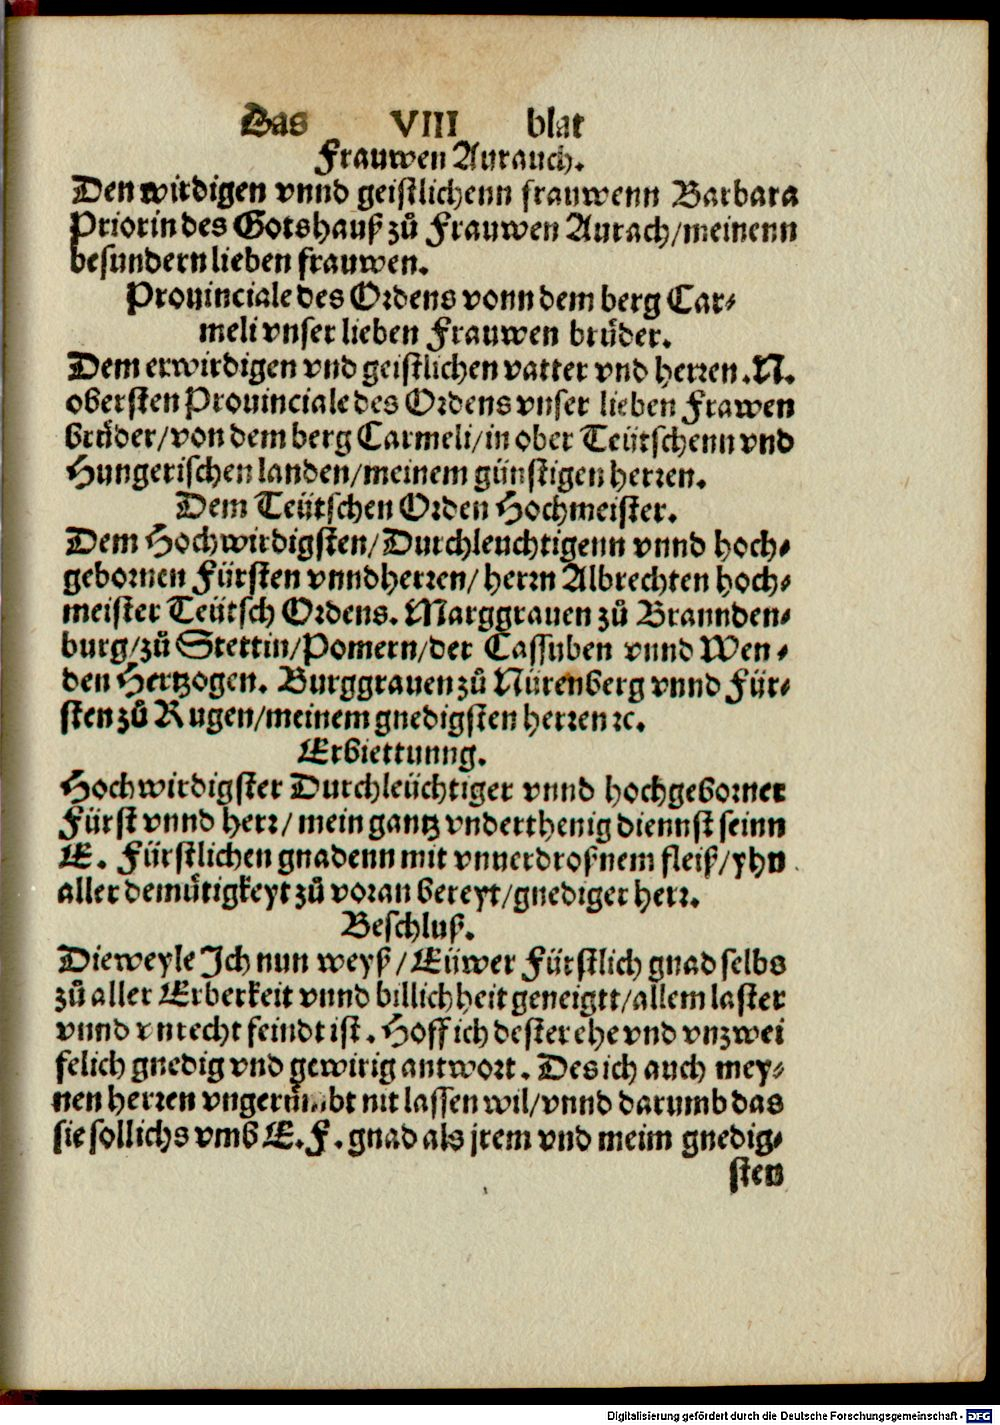 Das VIII blat
Frauwen Aurauch.
Den wirdigen vnnd geistlichenn frauwenn Barbara
Priorin des Gotshauß zů Frauwen Aurach/meinenn
besundern lieben frauwen.
Prouinciale des Ordens vonn dem berg Car⸗
meli vnser lieben Frauwen brůder.
Dem erwirdigen vnd geistlichen vatter vnd herren .N.
obersten Prouinciale des Ordens vnser lieben Frawen
brůder/von dem berg Carmeli/in ober Teütschenn vnd
Hungerischen landen/meinem günstigen herren.
Dem Teütschen Orden Hochmeister.
Dem Hochwirdigsten/Durchleuchtigenn vnnd hoch⸗
gebornen Fürsten vnnd herren/ herrn Albrechten hoch⸗
meister Teütsch Ordens. Marggrauen zů Brannden⸗
burg/zů Stettin/Pomern/der Cassuben vnnd Wen⸗
den Hertzogen. Burggrauen zů Nürenberg vnnd Für⸗
sten zů Rugen/meinem gnedigsten herren ꝛc.
Erbiettunng.
Hochwirdigster Durchleüchtiger vnnd hochgeborner
Fürst vnnd herr/ mein gantz vnderthenig diennst seinn
E. Fürstlichen gnadenn mit vnuerdroßnem fleiß/yhn
aller demůtigkeyt zů voran bereyt/gnediger herr.
Beschluß.
Dieweyle Ich nun weyß/Eüwer Fürstlich gnad selbs
zů aller Erberkeit vnnd billichheit geneigtt/allem laster
vnnd vnrecht feindt ist. Hoff ich dester ehe vnd vnzwei
felich gnedig vnd gewirig antwort. Des ich auch mey⸗
nen herren vngerůmbt nit lassen wil/vnnd darumb das
sie sollichs vmb E. F. gnad als jrem vnd meim gnedig⸗
sten
Digitalisierung gefördert durch die Deutsche Forschungsgemeinschaft - DFG